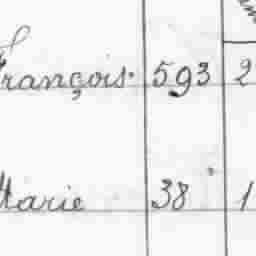 François. 593 2
Marie 38 1